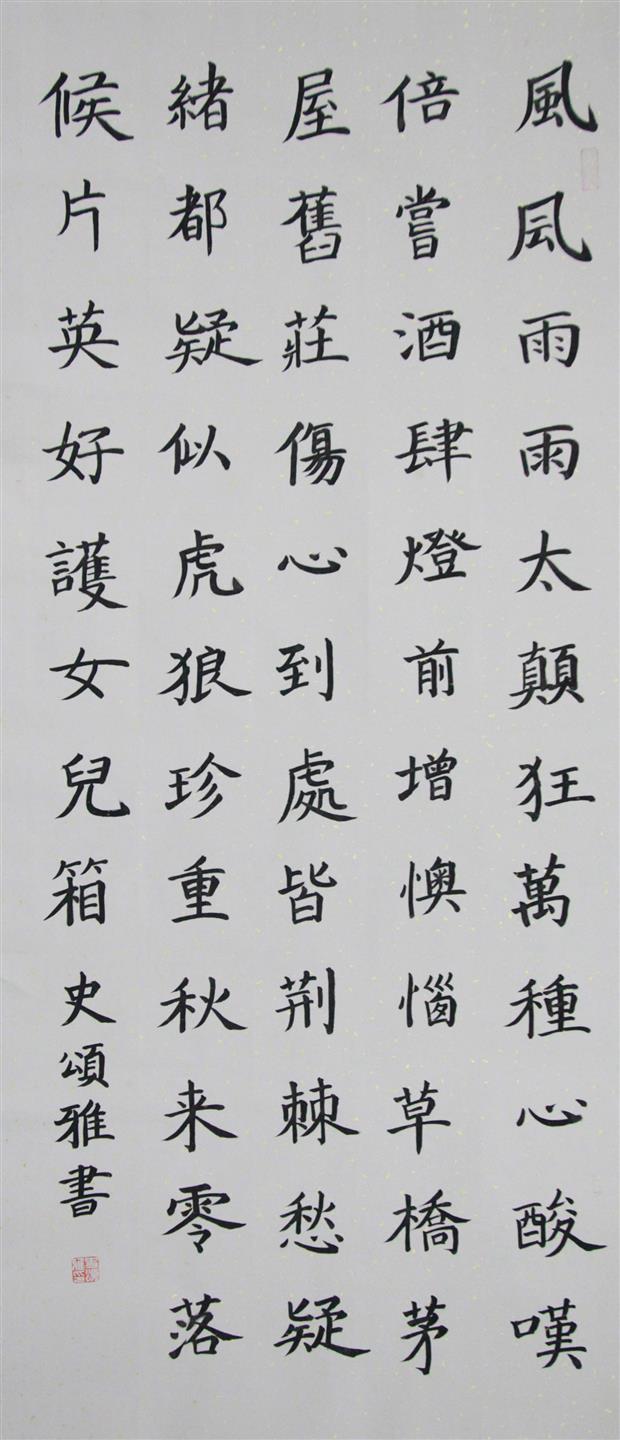 風風雨雨太顛狂萬種心酸嘆
倍嘗酒肆燈前增懊惱草橋茅
屋舊莊傷心到處皆荆棘愁疑
緒都疑似虎狼珍重秋来零落
候片英好護女兒箱
史頌雅書